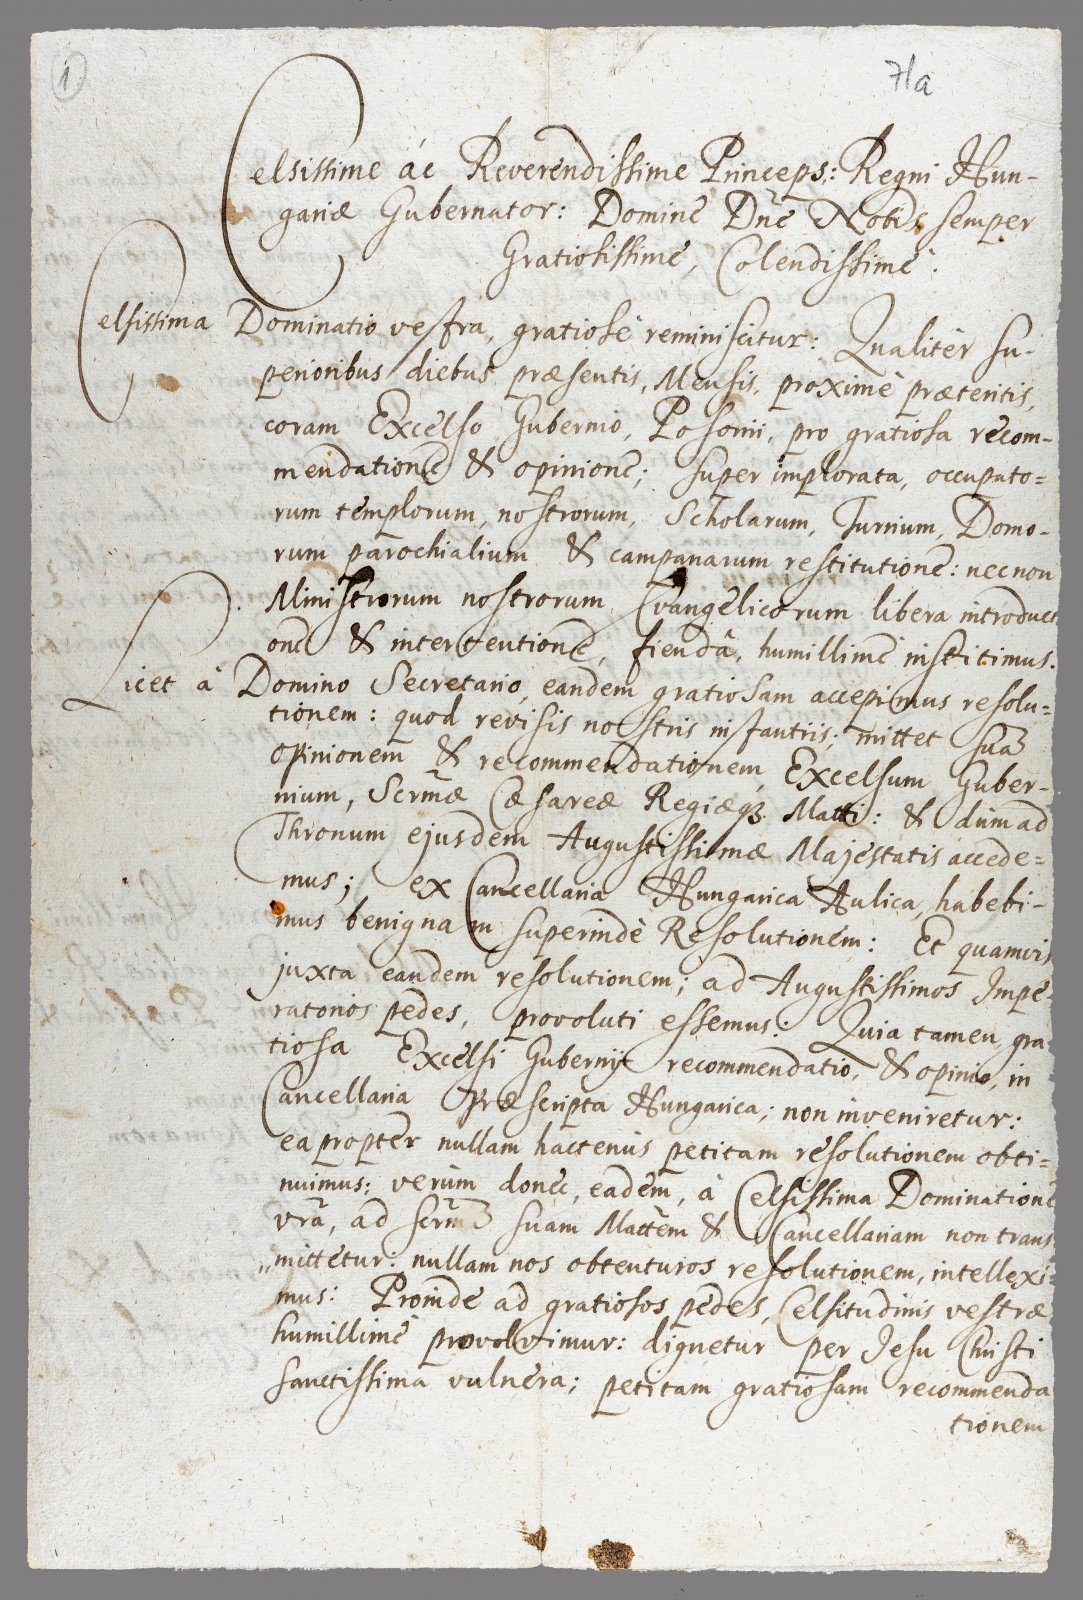 1
71a
Celsissime ác Reverendissime Princeps: Regni Hun-
gariæ Gubernator: Domine Dne Nobis semper
Gratiosissime, Colendissime.
Celsissima Dominatio vestra, gratiosè reminiscitur: Qualitèr su-
perioribus diebus præsentis, Mensis, proximè præteritis,
coram Excelso Gubernio, Posonii, pro gratiosa recom-
mendatione & opinione; super implorata, occupato=
rum templorum, nostrorum, Scholarum, Turrium, Domo-
rum parochialium & campanarum restitutione: nec non
Ministrorum nostrorum Evangelicorum libera introducti
one & intertentione, fiendâ, humillimè institimus.
Licet â Domino Secretario, eandem gratiosam accepimus resolu=
tionem: quod revisis nostris instantiis; mittet suã
opinionem & recommendationem, Excelsum Guber-
nium, Sermæ Cæsareæ Regiæq3 Matti: & dum ad
Thronum ejusdem Augustissimæ Majestatis accede=
mus; ex Cancellaria Hungarica Aulica, habebi-
mus benignam superindè Resolutionem: Et quamvis
juxta eandem resolutionem; ad Augustissimos Impe-
ratorios pedes, provoluti essemus: Quia tamen gra-
tiosa Excelsi Gubernij recommendatio, & opinio, in
Cancellaria præscripta Hungarica; non inveniretur:
eapropter nullam hactenus petitam resolutionem obti=
nuimus; verùm donec, eadem, à Celsissima Dominatione
vrã, ad sermã suam Mattèm & Cancellariam non trans
„mittetur: nullam nos obtenturos resolutionem, intellexi-
mus: Proinde ad gratiosos pedes, Celsitudinis vestræ
humillimè provolvimur: dignetur per Jesu Christi
sanctissima vulnera; petitam gratiosam recommenda
tionem